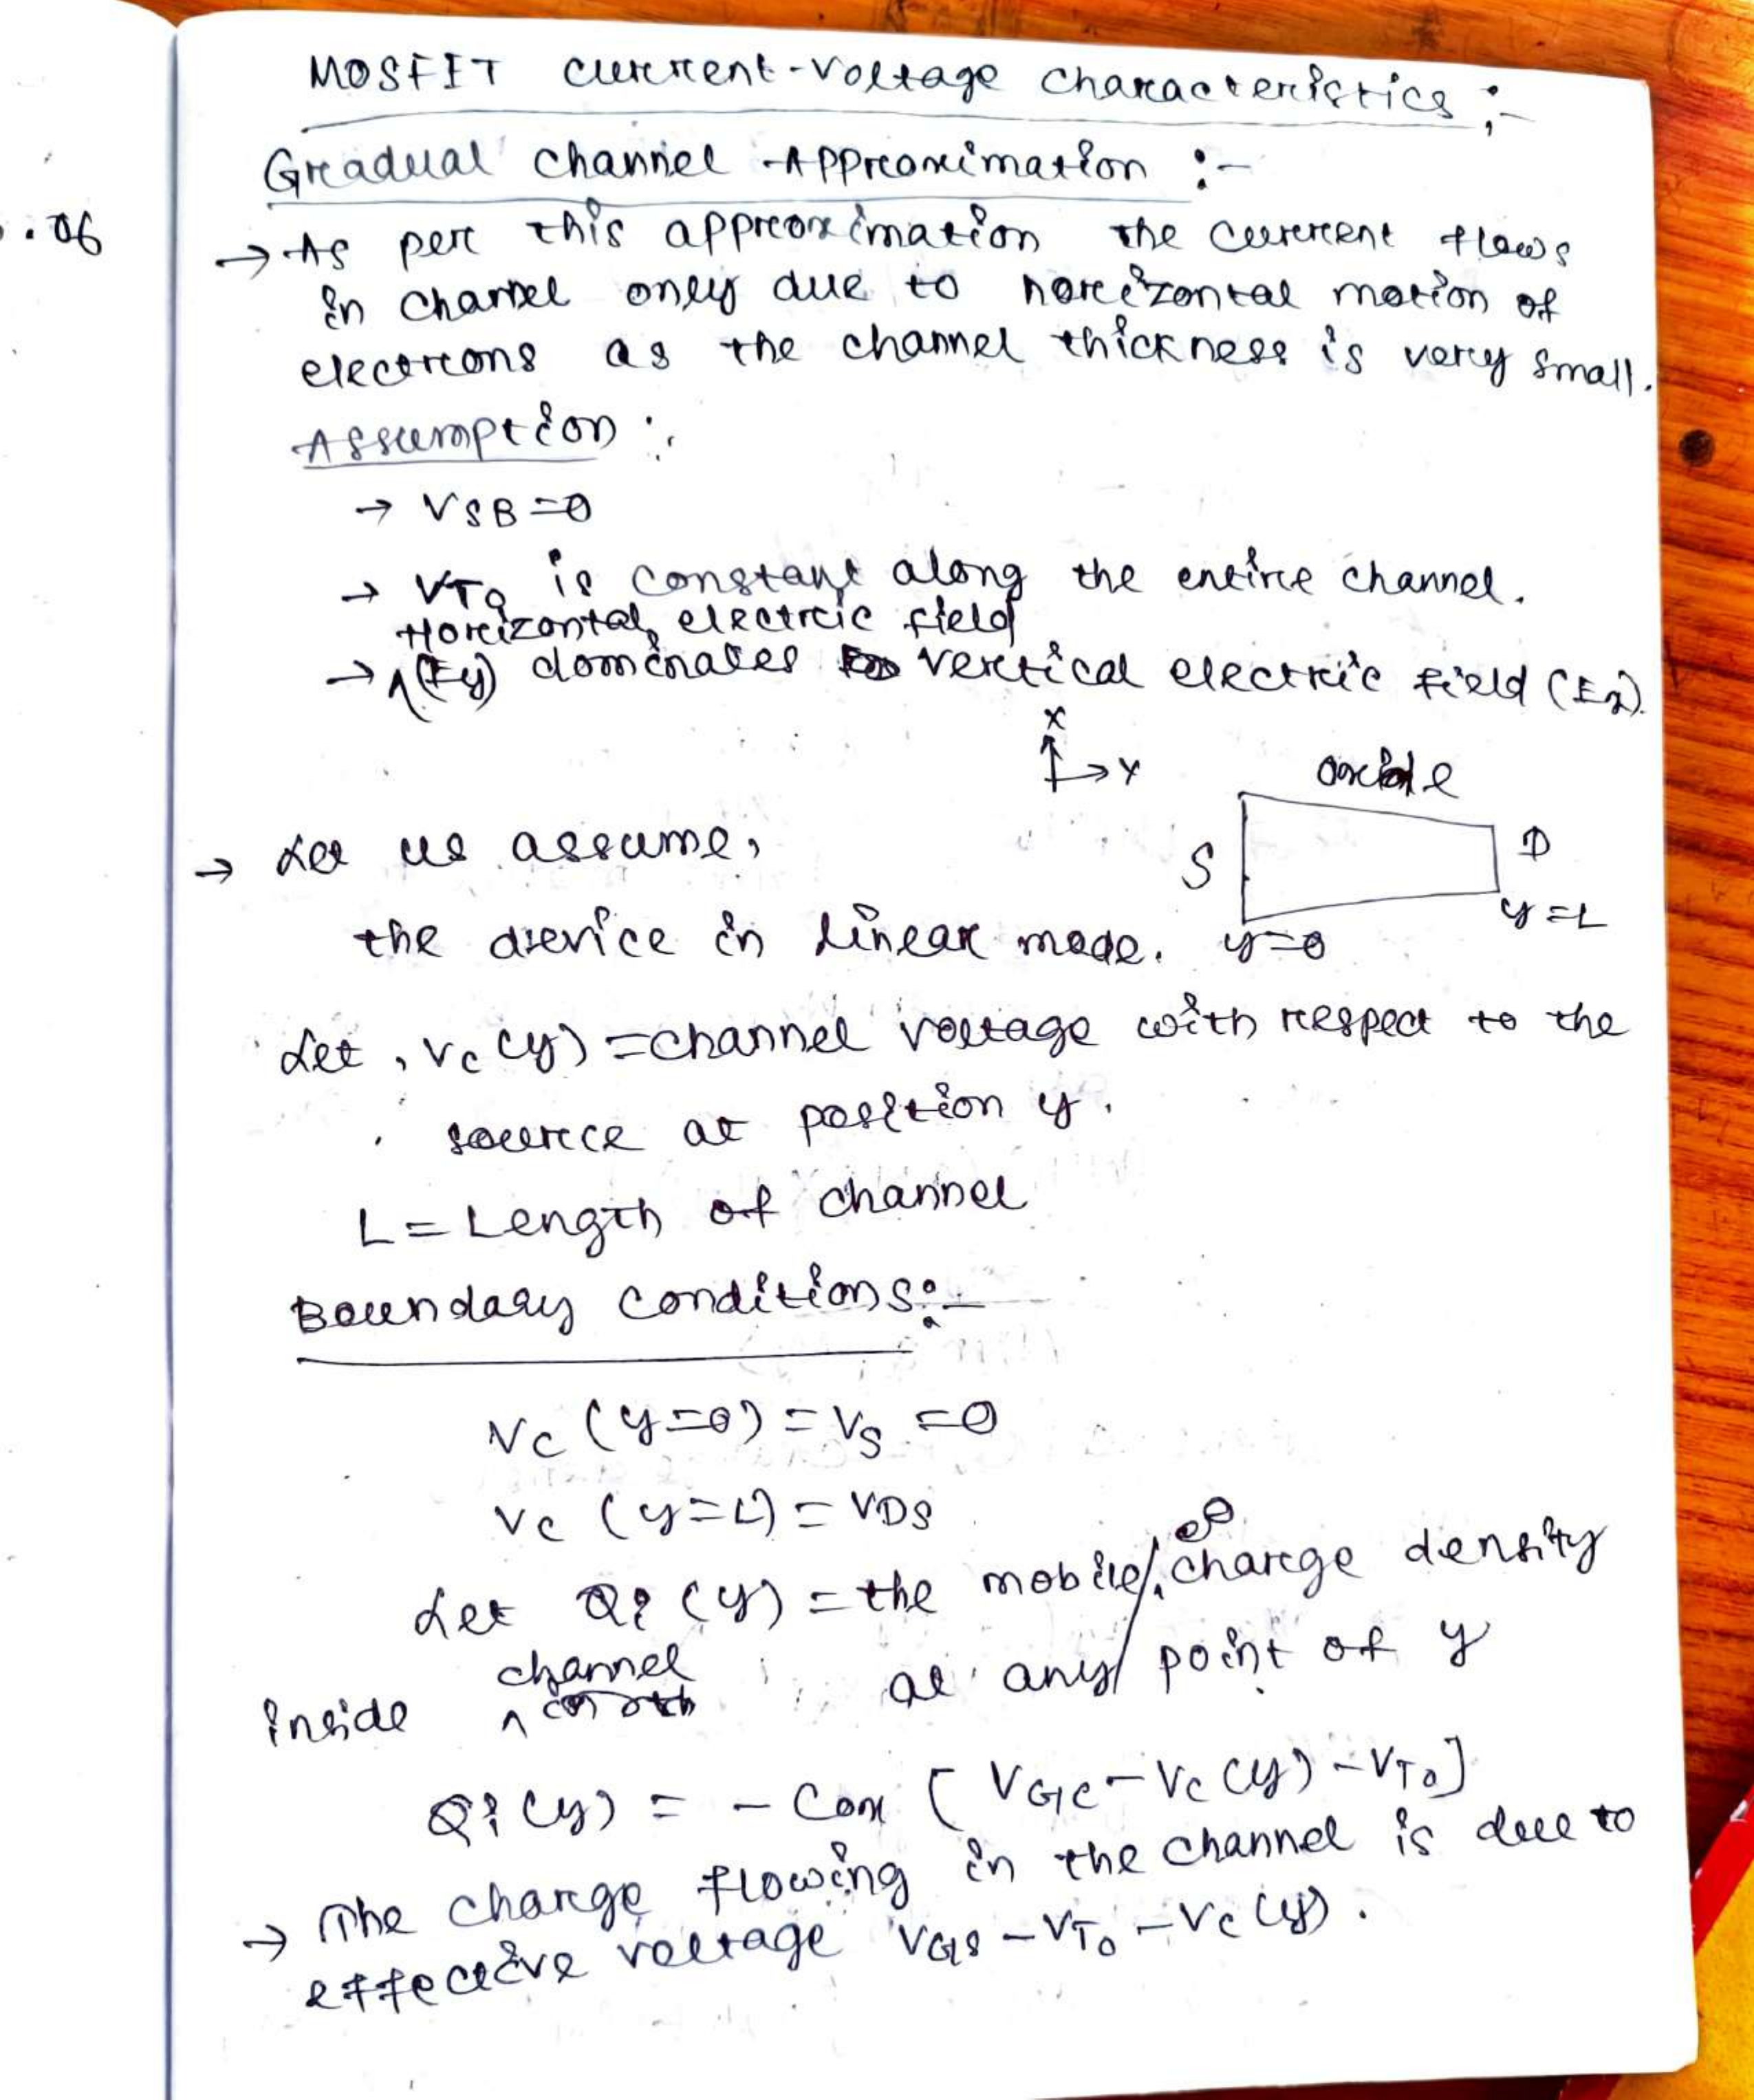 MOSFET current-voltage characteristics :-
Gradual channel Approximation :-
. 06
→ As per this approximation the current flows
in channel only due to horizontal motion of
electrons as the channel thickness is very small.
Assumption :
→ VSB = 0
→ VT0 is constant along the entire channel.
Horizontal electric field
→ ^(Ey) dominates vertical electric field (Ex).
X
→ Y
oxide
S
D
y=L
y=0
→ Let us assume,
the device in linear mode.
Let, Vc (y) = channel voltage with respect to the
source at position y.
L = Length of channel
Boundary conditions :-
Vc (y=0) = Vs = 0
Vc (y=L) = VDS
Let Qi (y) = the mobile charge density
channel
inside ^ at any point of y
Qi (y) = - Cox [ VGC - Vc (y) - VT0 ]
→ The charge flowing in the channel is due to
effective voltage VGS - VT0 - Vc (y).